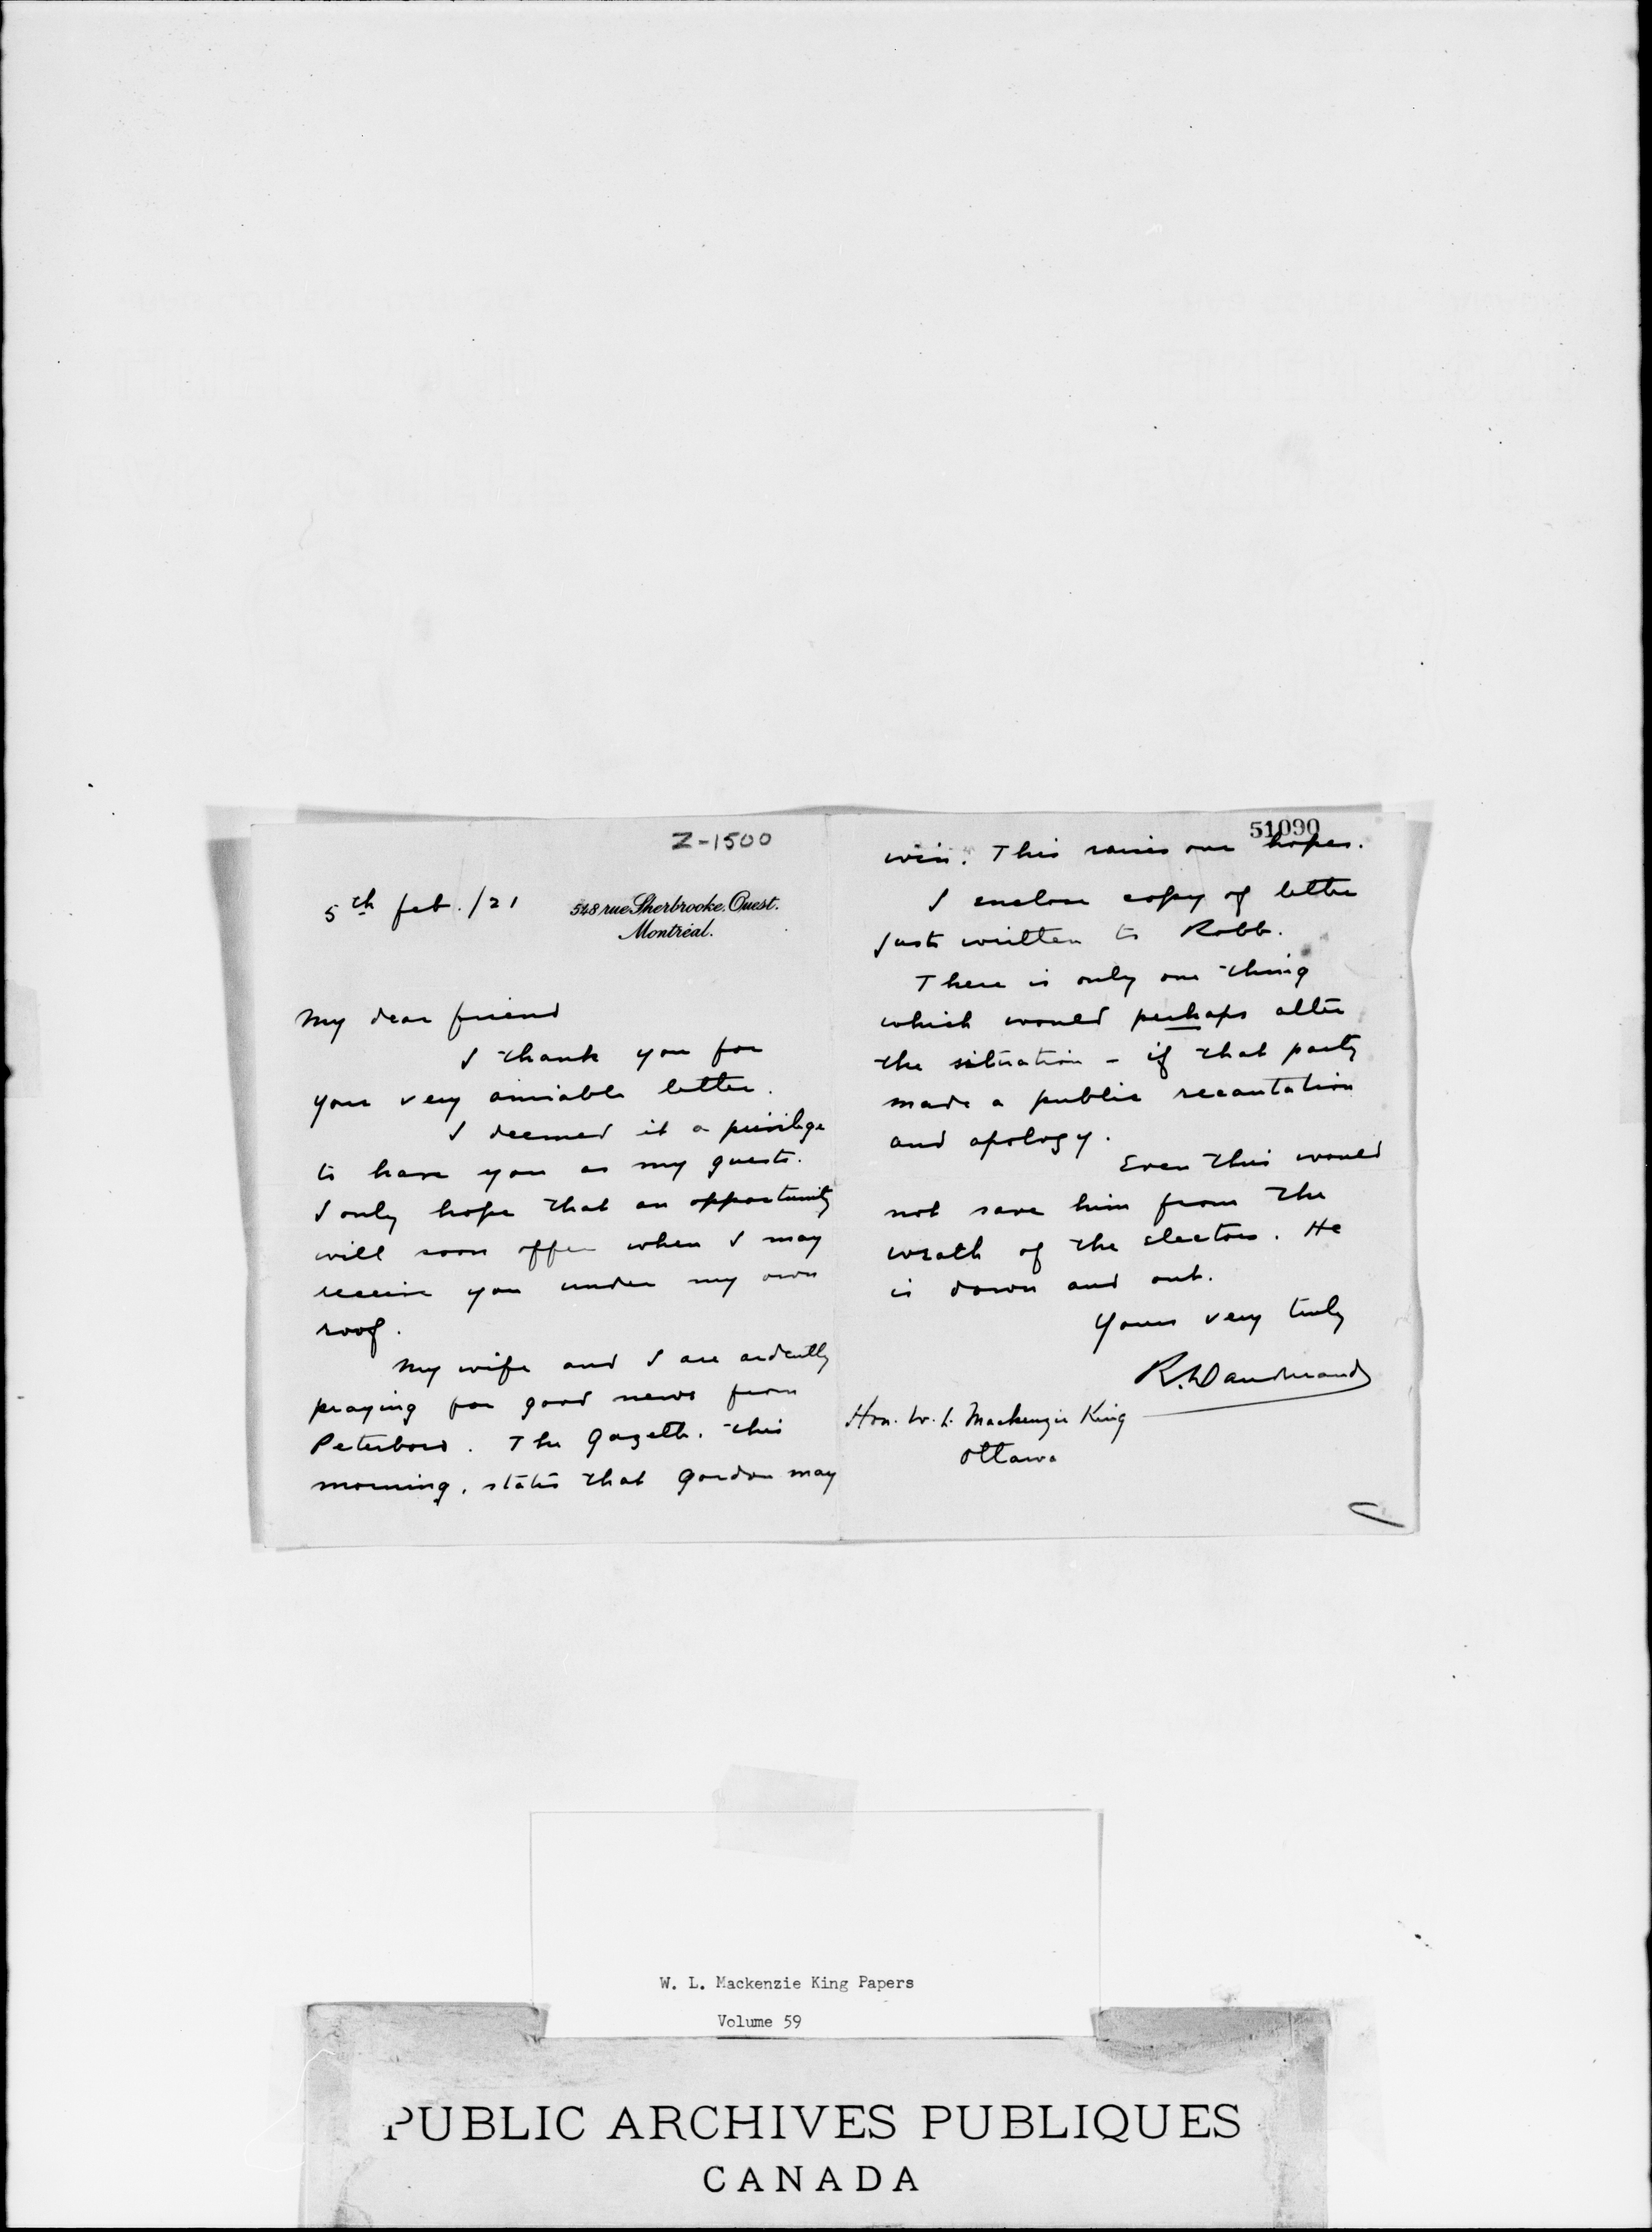 Z-1500
5th feb. /21
548 rue Sherbrooke. Ouest.
Montréal.
My dear friend
I thank you for
your very amiable letter.
I deemed it a privilege
to have you as my guest.
I only hope that an opportunity
will soon offer when I may
receive you under my own
roof.
My wife and I are ardently
praying for good news from
Peterboro. The Gazette, this
morning, states that Gordon may
51090
win. This raises our hopes.
I enclose copy of letter
just written to Robb.
There is only one thing
which would perhaps alter
the situation - if that party
made a public recantation
and apology.
Even this would
not save him from the
wrath of the electors. He
is down and out.
Yours very truly
R. Dandurand
Hon. W. L. Mackenzie King
Ottawa
W. L. Mackenzie King Papers
Volume 59
PUBLIC ARCHIVES PUBLIQUES
CANADA